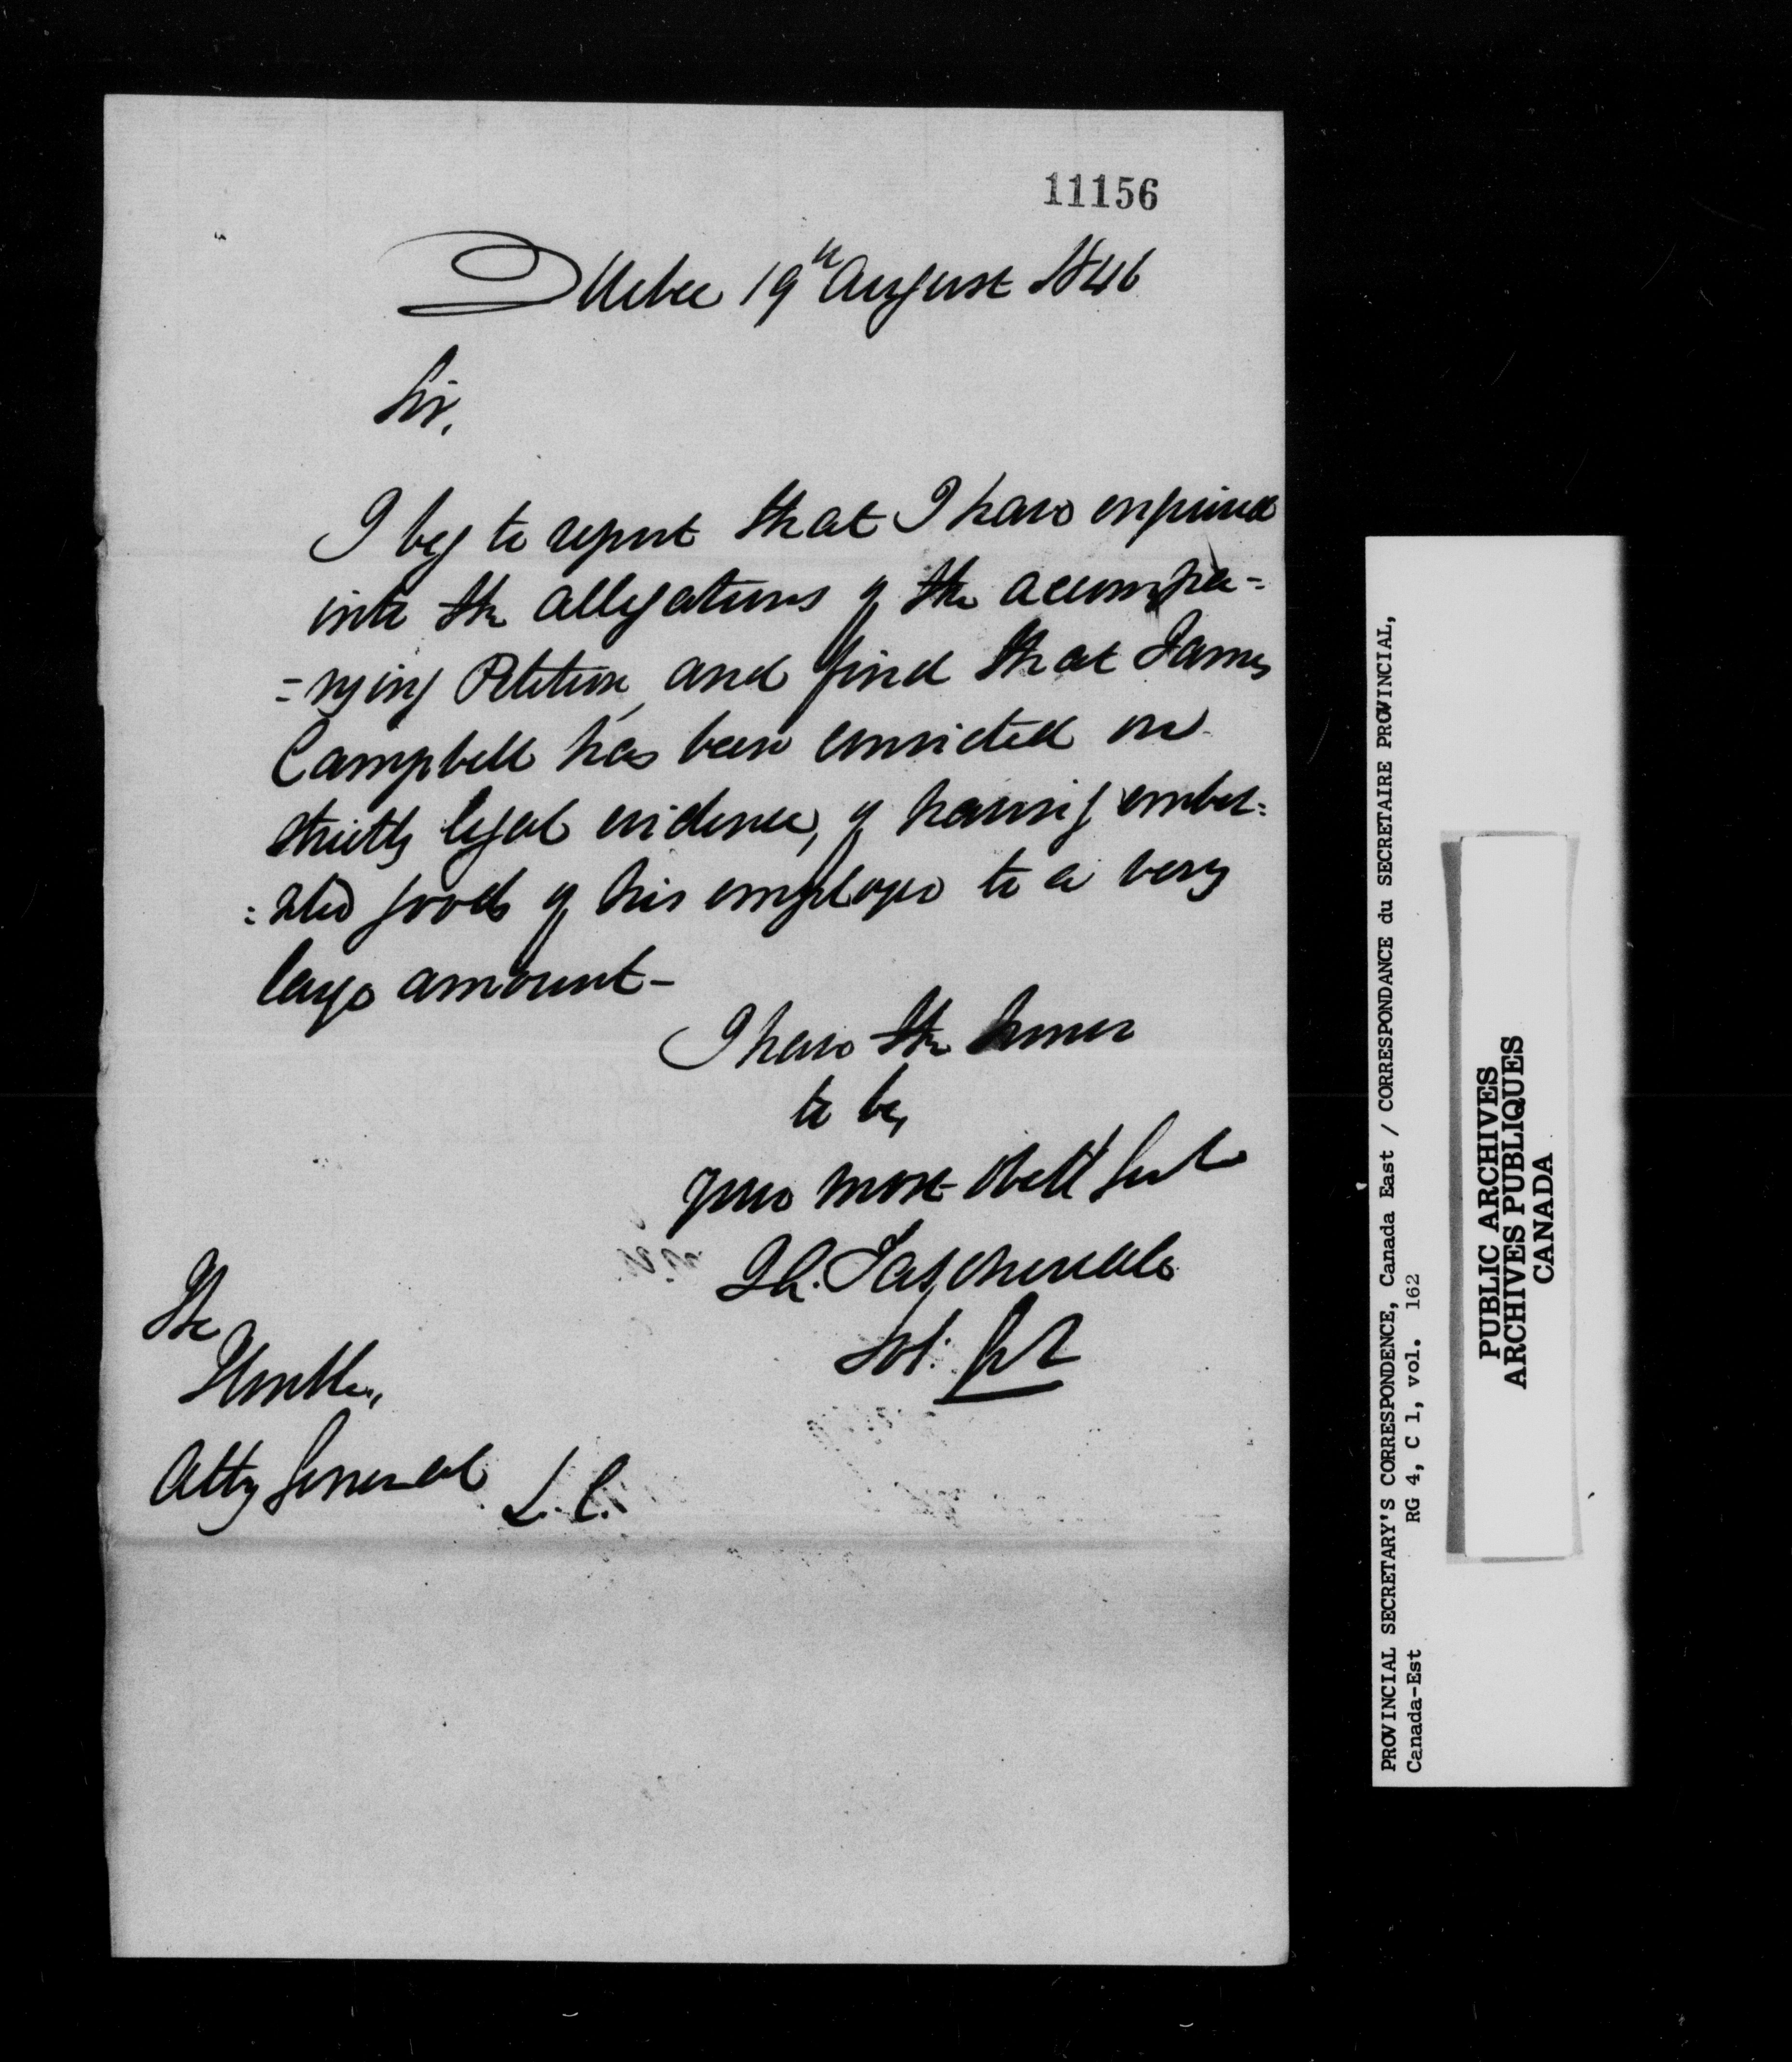 11156
Quebec 19th August 1846
Sir,
I beg to report that I have enquired
into the allegations of the accompa=
=nying Petition, and find that James
Campbell has been convicted on
strictly legal evidence, of having embez=
=zled goods of his employer to a very
large amount-
I have the honor
to be,
your most obdt Servt
J. A. Taschereau
Sol: Genl
The
Honble.,
Atty General L. C.
PROVINCIAL SECRETARY'S CORRESPONDENCE, Canada East / CORRESPONDANCE du SECRETAIRE PROVINCIAL,
Canada-Est RG 4, C 1, vol. 162
PUBLIC ARCHIVES
ARCHIVES PUBLIQUES
CANADA